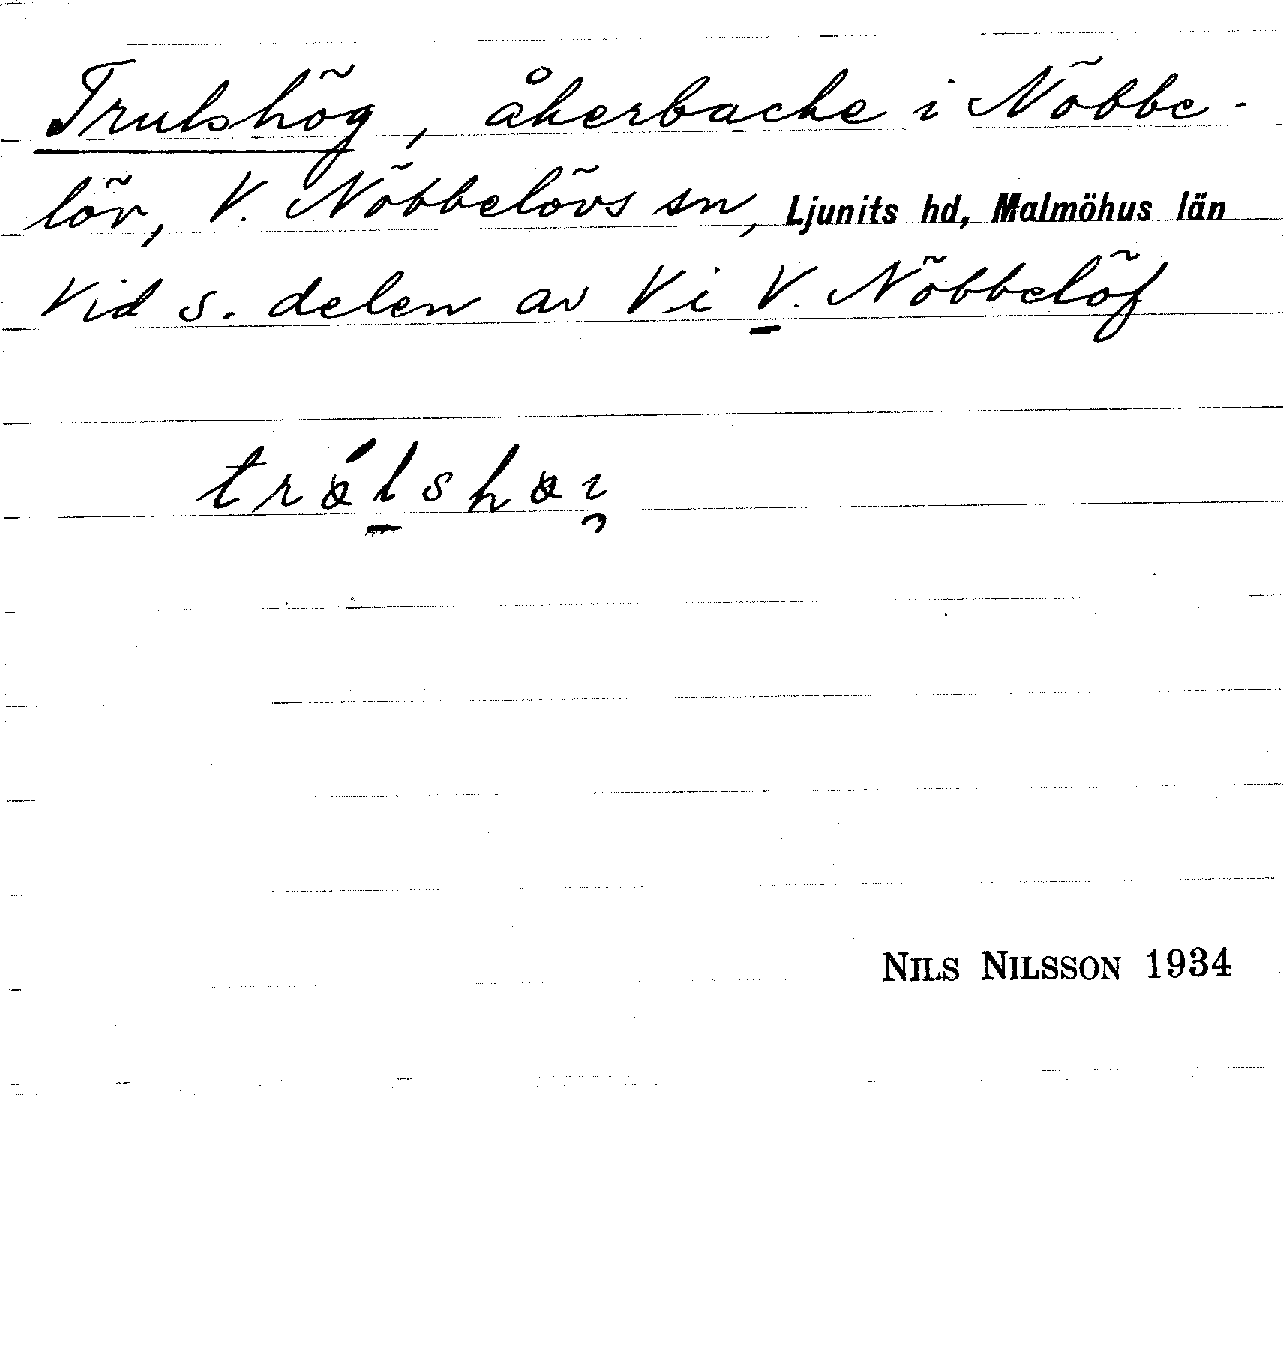 Trulshög, åkerbacke i Nöbbe-
löv, V. Nöbbelövs sn, Ljunits hd, Malmöhus län
Vid s. delen av V i V. Nöbbelöf
NILS NILSSON 1934